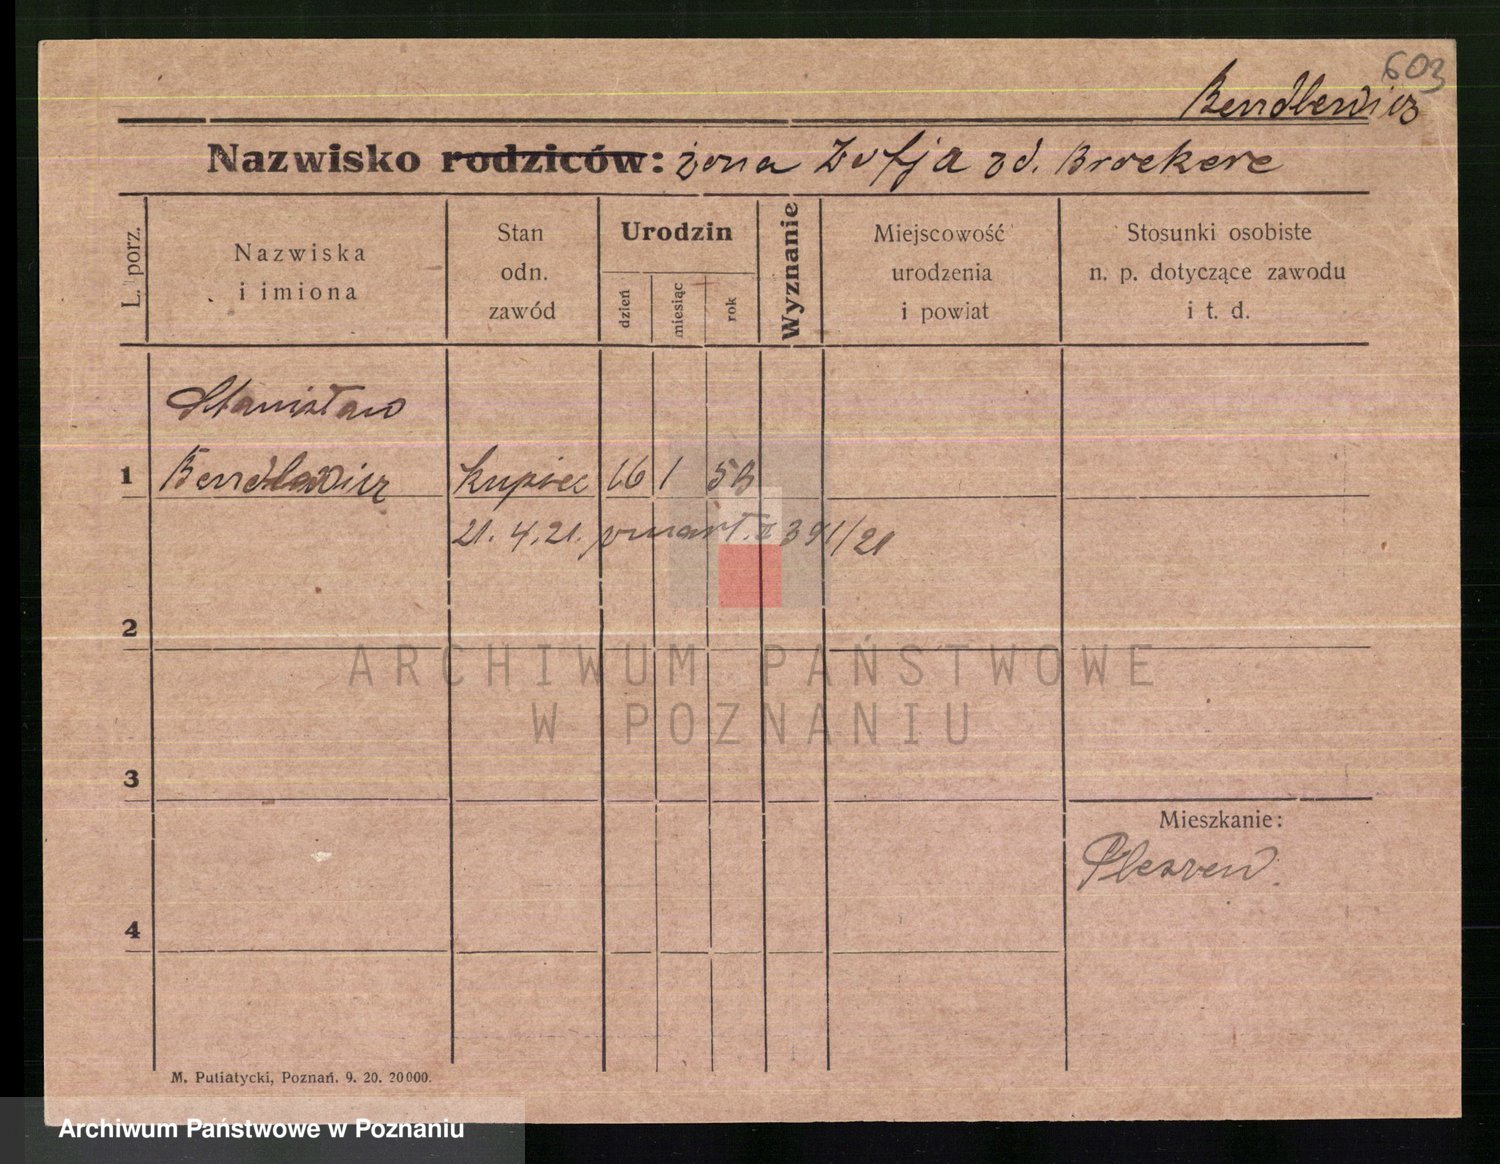 603
Bendlewicz
Nazwisko rodziców: żona Zofja zd. Broekere
L. porz.
Nazwiska
i imiona
Stan
odn.
zawód
Urodzin
dzień
miesiąc
rok
Wyznanie
Miejscowość
urodzenia
i powiat
Stosunki osobiste
n. p. dotyczące zawodu
i t. d.
Stanisław
1 Bendlewicz kupiec 16 1 53
21. 4. 21. umarł. II 391/21
2
ARCHIWUM PAŃSTWOWE
W POZNANIU
3
Mieszkanie:
Pleszew.
4
M. Putiatycki, Poznań. 9. 20. 20000.
Archiwum Państwowe w Poznaniu